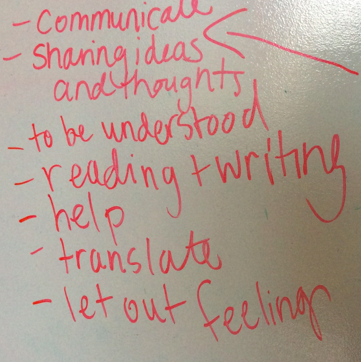 - Communicate
- Sharing ideas
and thoughts
- to be understood
- reading + writing
- help
- translate
- let out feelings